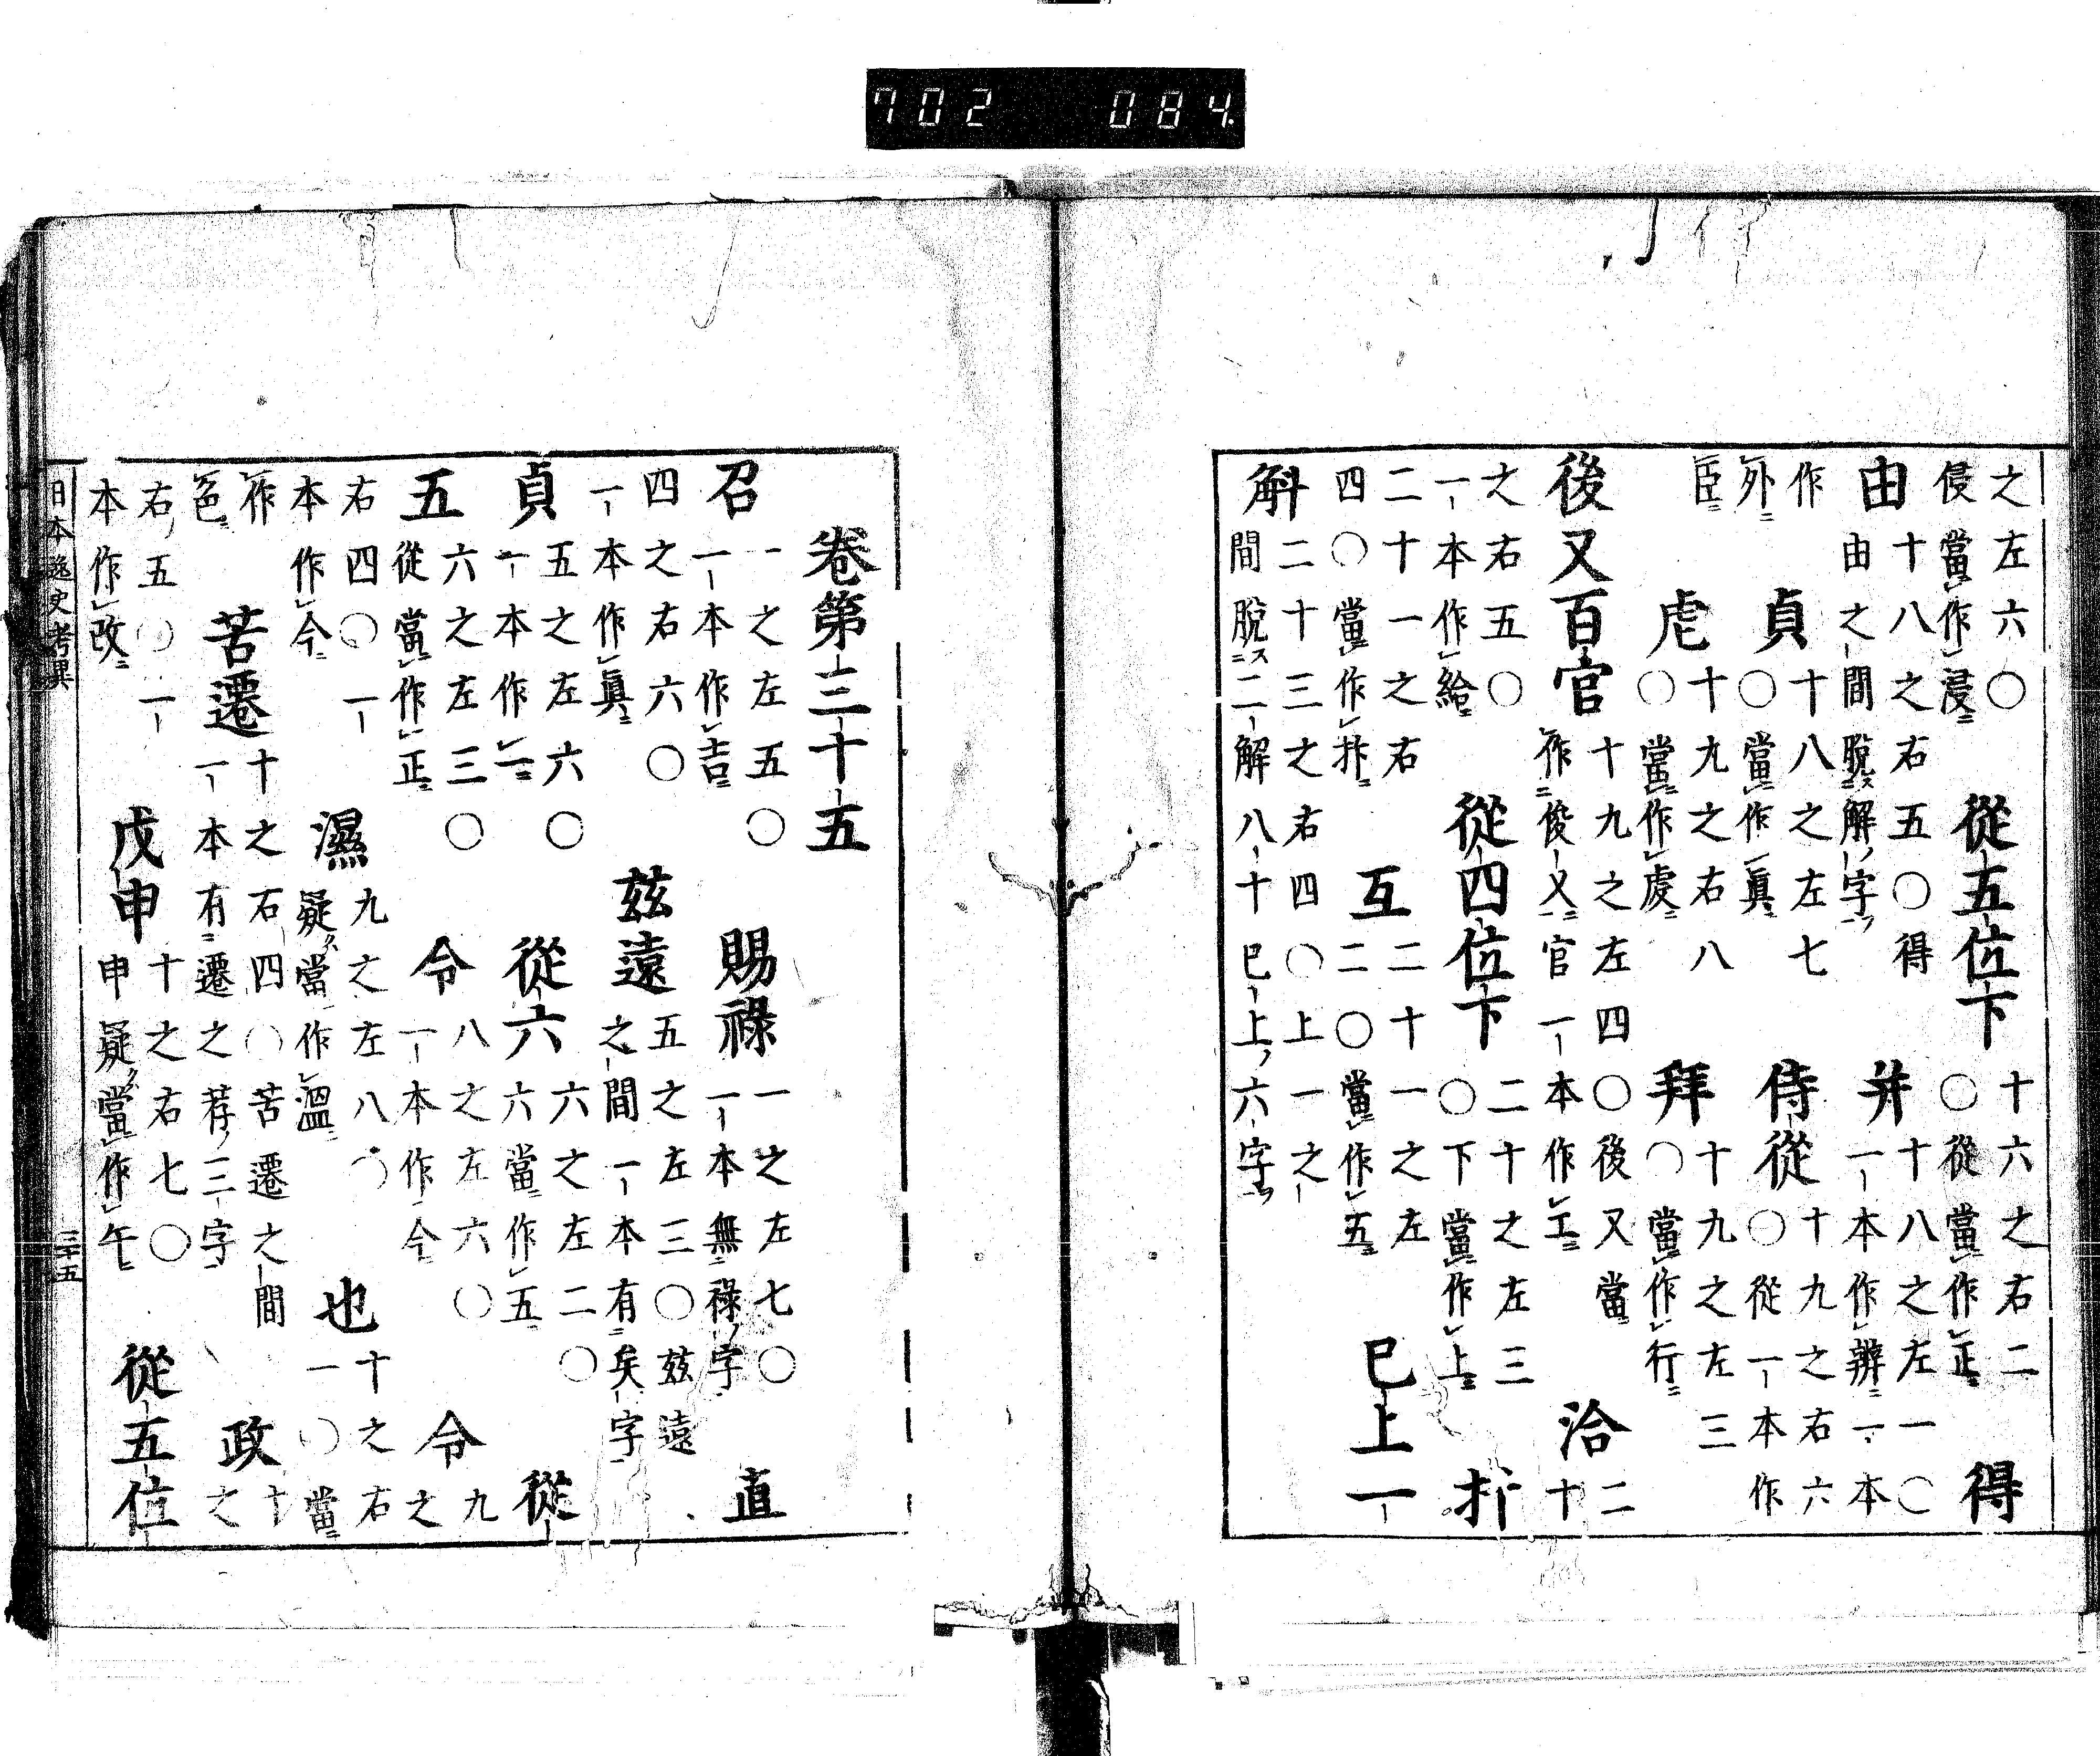 之左六〇侵當作浸 從五位下 十六之右二〇從當作正 得
由 十八之右五〇得由之間脫解字 并 十八之左一〇一本作辨一本
作外 貞 十八之左七〇當作眞 侍從 十九之右六〇從一本作
臣 虍 十九之右八〇當作處 拜 十九之左三〇當作行
後又百官 十九之左四〇後又當作俊乂官一本作工 洽 二十
之右五〇一本作給 從四位下 二十之左三〇下當作上
二十一之右四〇當作拃 互 二十一之左二〇當作五 巳上一
斛 二十三之右四〇上一之間脫二解八十巳上六字
卷第三十五
召 一之左五〇一本作吉 賜祿 一之左七〇一本無祿字 直
四之右六〇一本作眞 茲遠 五之左三〇茲遠之間一本有矣字
貞 五之左六〇一本作二 從六 六之左二〇六當作五 從
五 六之左三〇從當作正 令 八之左六〇一本作今 令 九之
右四〇一本作今 濕 九之左八〇疑當作溫 也 十之右一〇當
作色 苦遷 十之右四〇苦遷之間一本有遷之荐三字 政 十之
右五〇一本作改 戊申 十之右七〇申疑當作午 從五位
日本逸史考異 三十五
702 084